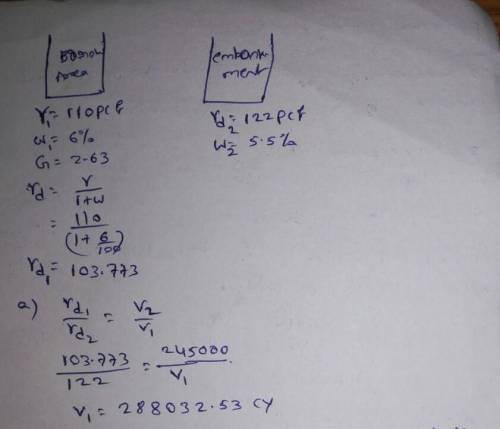 Borrow
Area
embank-
ment
γ₁ = 110 pcf
w₁ = 6%
G = 2.63
γd₂ = 122 pcf
w₂ = 5.5%
γd = γ / 1+w
= 110 / (1 + 6/100)
γd₁ = 103.773
a) γd₁ / γd₂ = V₂ / V₁
103.773 / 122 = 245000 / V₁
V₁ = 288032.53 CY